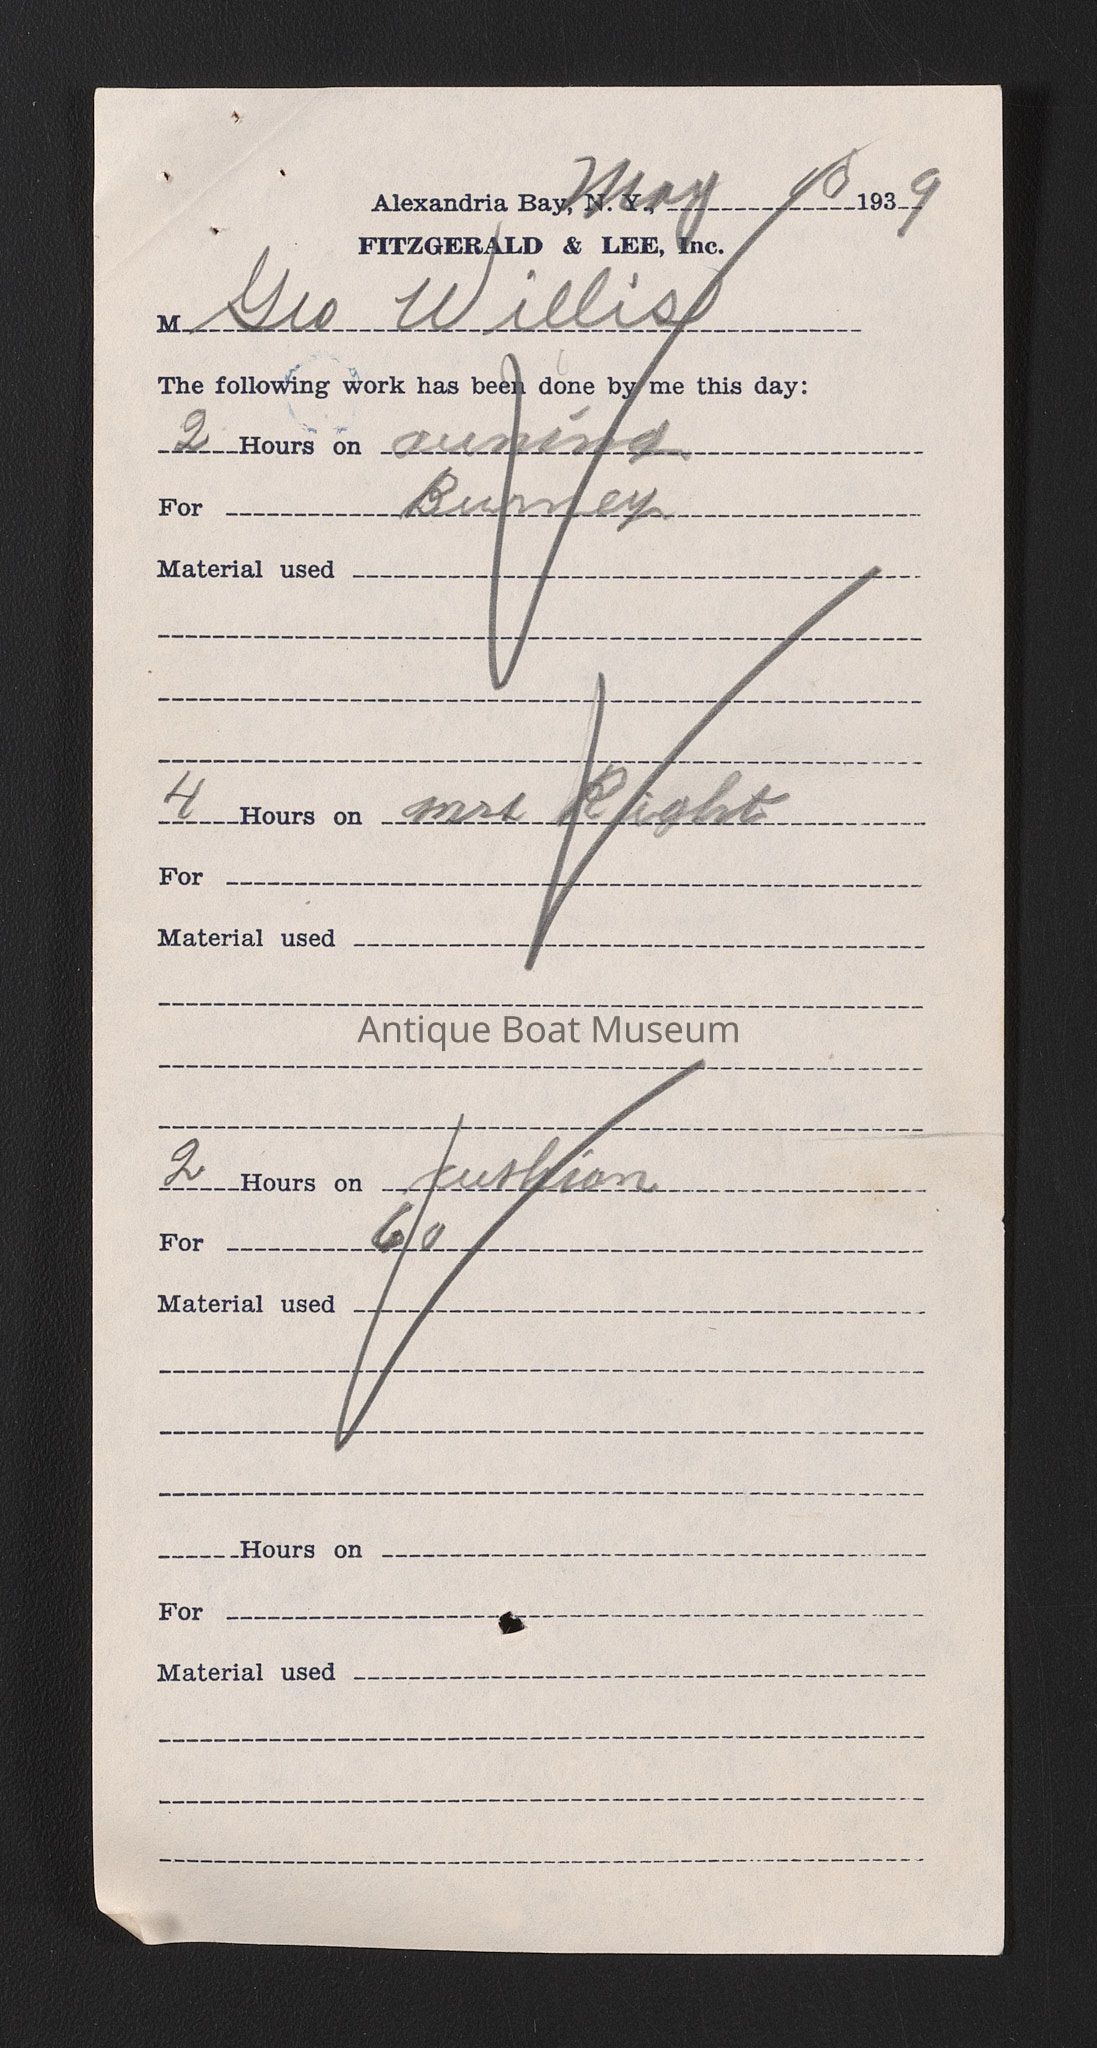 Alexandria Bay, N. Y., May 1939
FITZGERALD & LEE, Inc.
M Geo Willis
The following work has been done by me this day:
2 Hours on
For Burney
Material used
4 Hours on mrs Right
For
Material used
Antique Boat Museum
2 Hours on cushion
For Co
Material used
Hours on
For
Material used